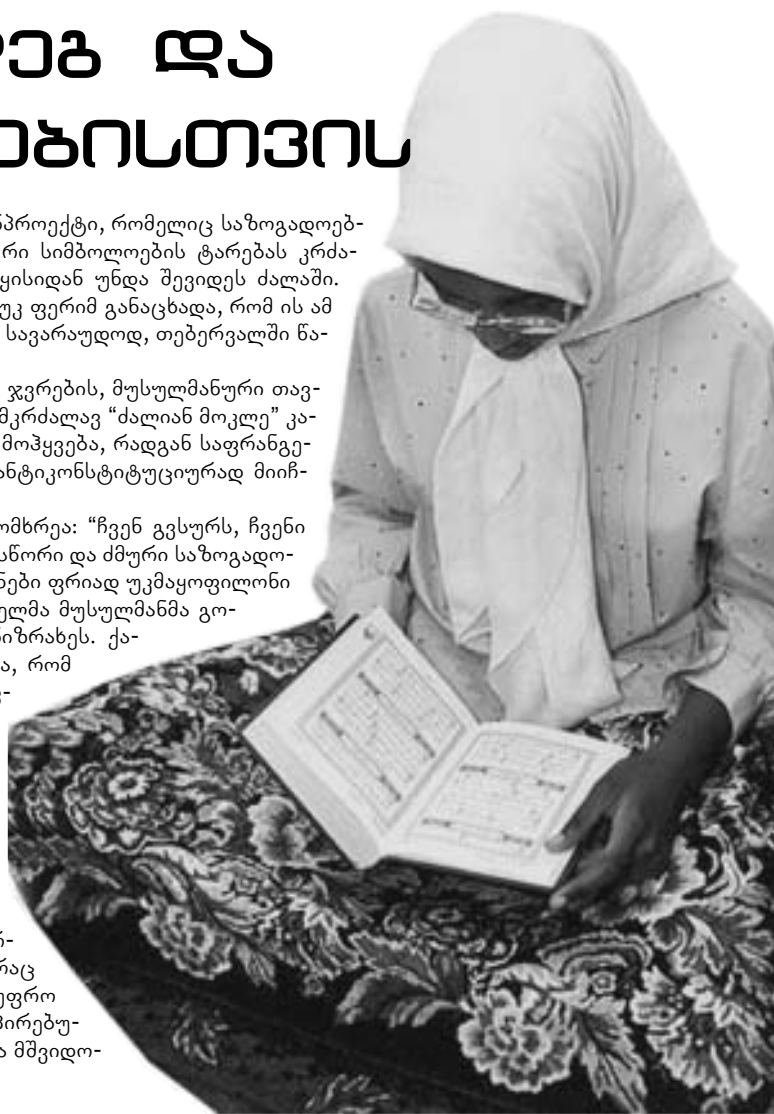 და
ებისთვის
პროექტი, რომელიც საზოგადოებ-
რი სიმბოლოების ტარებას კრძა-
ყისიდან უნდა შევიდეს ძალაში.
უკ ფერიმ განაცხადა, რომ ის ამ
სავარაუდოდ, თებერვალში წა-
ჯვრების, მუსულმანური თავ-
მკრძალავ “ძალიან მოკლე” კა-
მოჰყვება, რადგან საფრანგე-
ანტიკონსტიტუციურად მიიჩ-
ომხრეა: “ჩვენ გვსურს, ჩვენი
სწორი და ძმური საზოგადო-
ნები ფრიად უკმაყოფილონი
ელმა მუსულმანმა გო-
იზრახეს. ქა-
ა, რომ
რაც
უფრო
პირებუ-
ა მშვიდო-